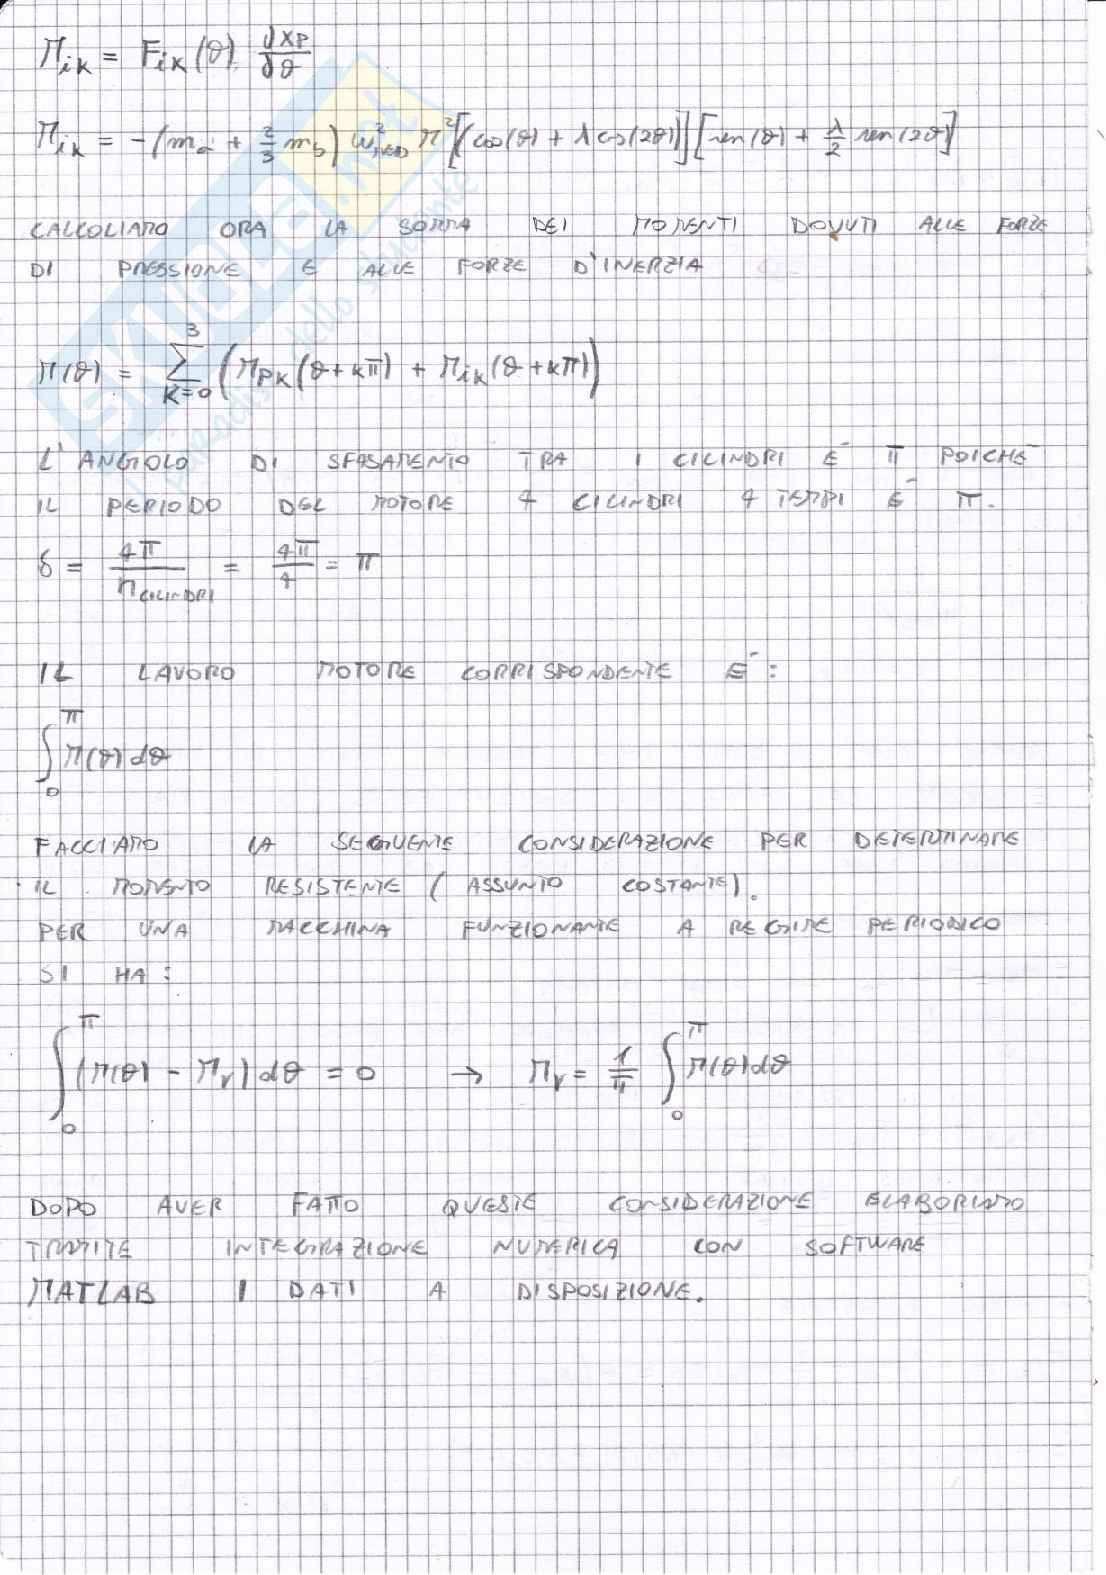 M_ik = F_ik(θ) ∂x_P/∂θ
M_ik = -(m_a + 2/3 m_b) ω²_MED r² [(cos(θ) + λ cos(2θ))] [sen(θ) + λ/2 sen(2θ)]
CALCOLIAMO ORA LA SOMMA DEI MOMENTI DOVUTI ALLE FORZE
DI PRESSIONE E ALLE FORZE D'INERZIA
M(θ) = Σ_{K=0}^{3} (M_PK(θ+kπ) + M_ik(θ+kπ))
L'ANGOLO DI SFASAMENTO TRA I CILINDRI È π POICHÈ
IL PERIODO DEL MOTORE 4 CILINDRI 4 TEMPI È π.
δ = 4π/n_CILINDRI = 4π/4 = π
IL LAVORO MOTORE CORRISPONDENTE È:
∫_0^π M(θ)dθ
FACCIAMO LA SEGUENTE CONSIDERAZIONE PER DETERMINARE
IL MOMENTO RESISTENTE (ASSUNTO COSTANTE).
PER UNA MACCHINA FUNZIONANTE A REGIME PERIODICO
SI HA:
∫_0^π (M(θ) - M_r)dθ = 0 → M_r = 1/π ∫_0^π M(θ)dθ
DOPO AVER FATTO QUESTE CONSIDERAZIONE ELABORIAMO
TRAMITE INTEGRAZIONE NUMERICA CON SOFTWARE
MATLAB I DATI A DISPOSIZIONE.
SKUOLA.net
dello studente